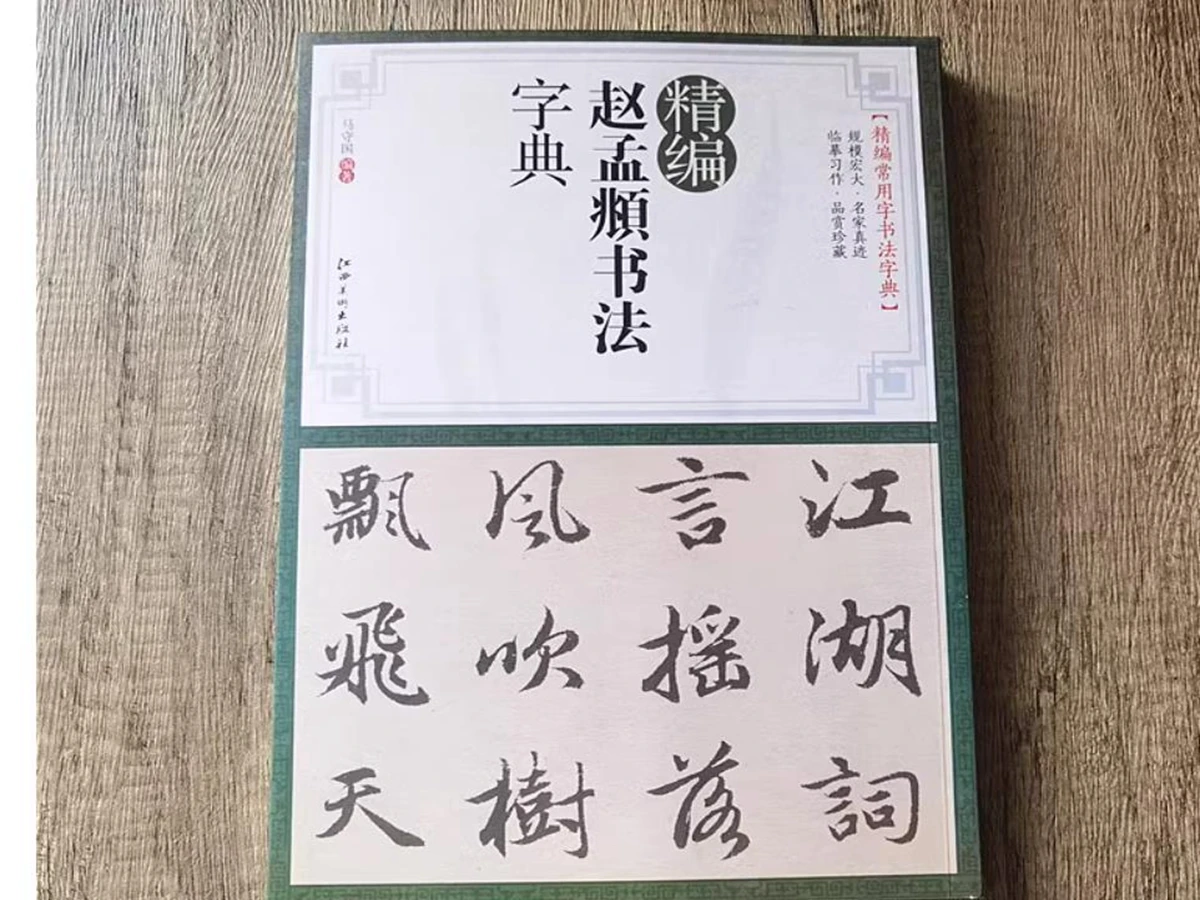 【精编常用字书法字典】
规模宏大·名家真迹
临摹习作·品赏珍藏
精编
赵孟頫书法
字典
马守国 编著
江西美术出版社
江湖詞
言摇落
风吹樹
飄飛天